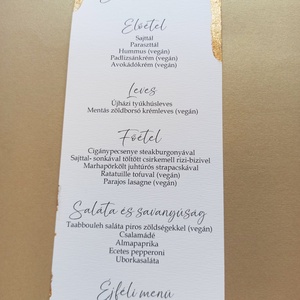 Előétel
Sajttál
Paraszttál
Hummus (vegán)
Padlizsánkrém (vegán)
Avokádókrém (vegán)
Leves
Újházi tyúkhúsleves
Mentás zöldborsó krémleves (vegán)
Főétel
Cigánypecsenye steakburgonyával
Sajttal- sonkával töltött csirkemell rizi-bizivel
Marhapörkölt juhtúrós strapacskával
Ratatuille tofuval (vegán)
Parajos lasagne (vegán)
Saláta és savanyúság
Taabbouleh saláta piros zöldségekkel (vegán)
Csalamádé
Almapaprika
Ecetes pepperoni
Uborkasaláta
Éjféli menü